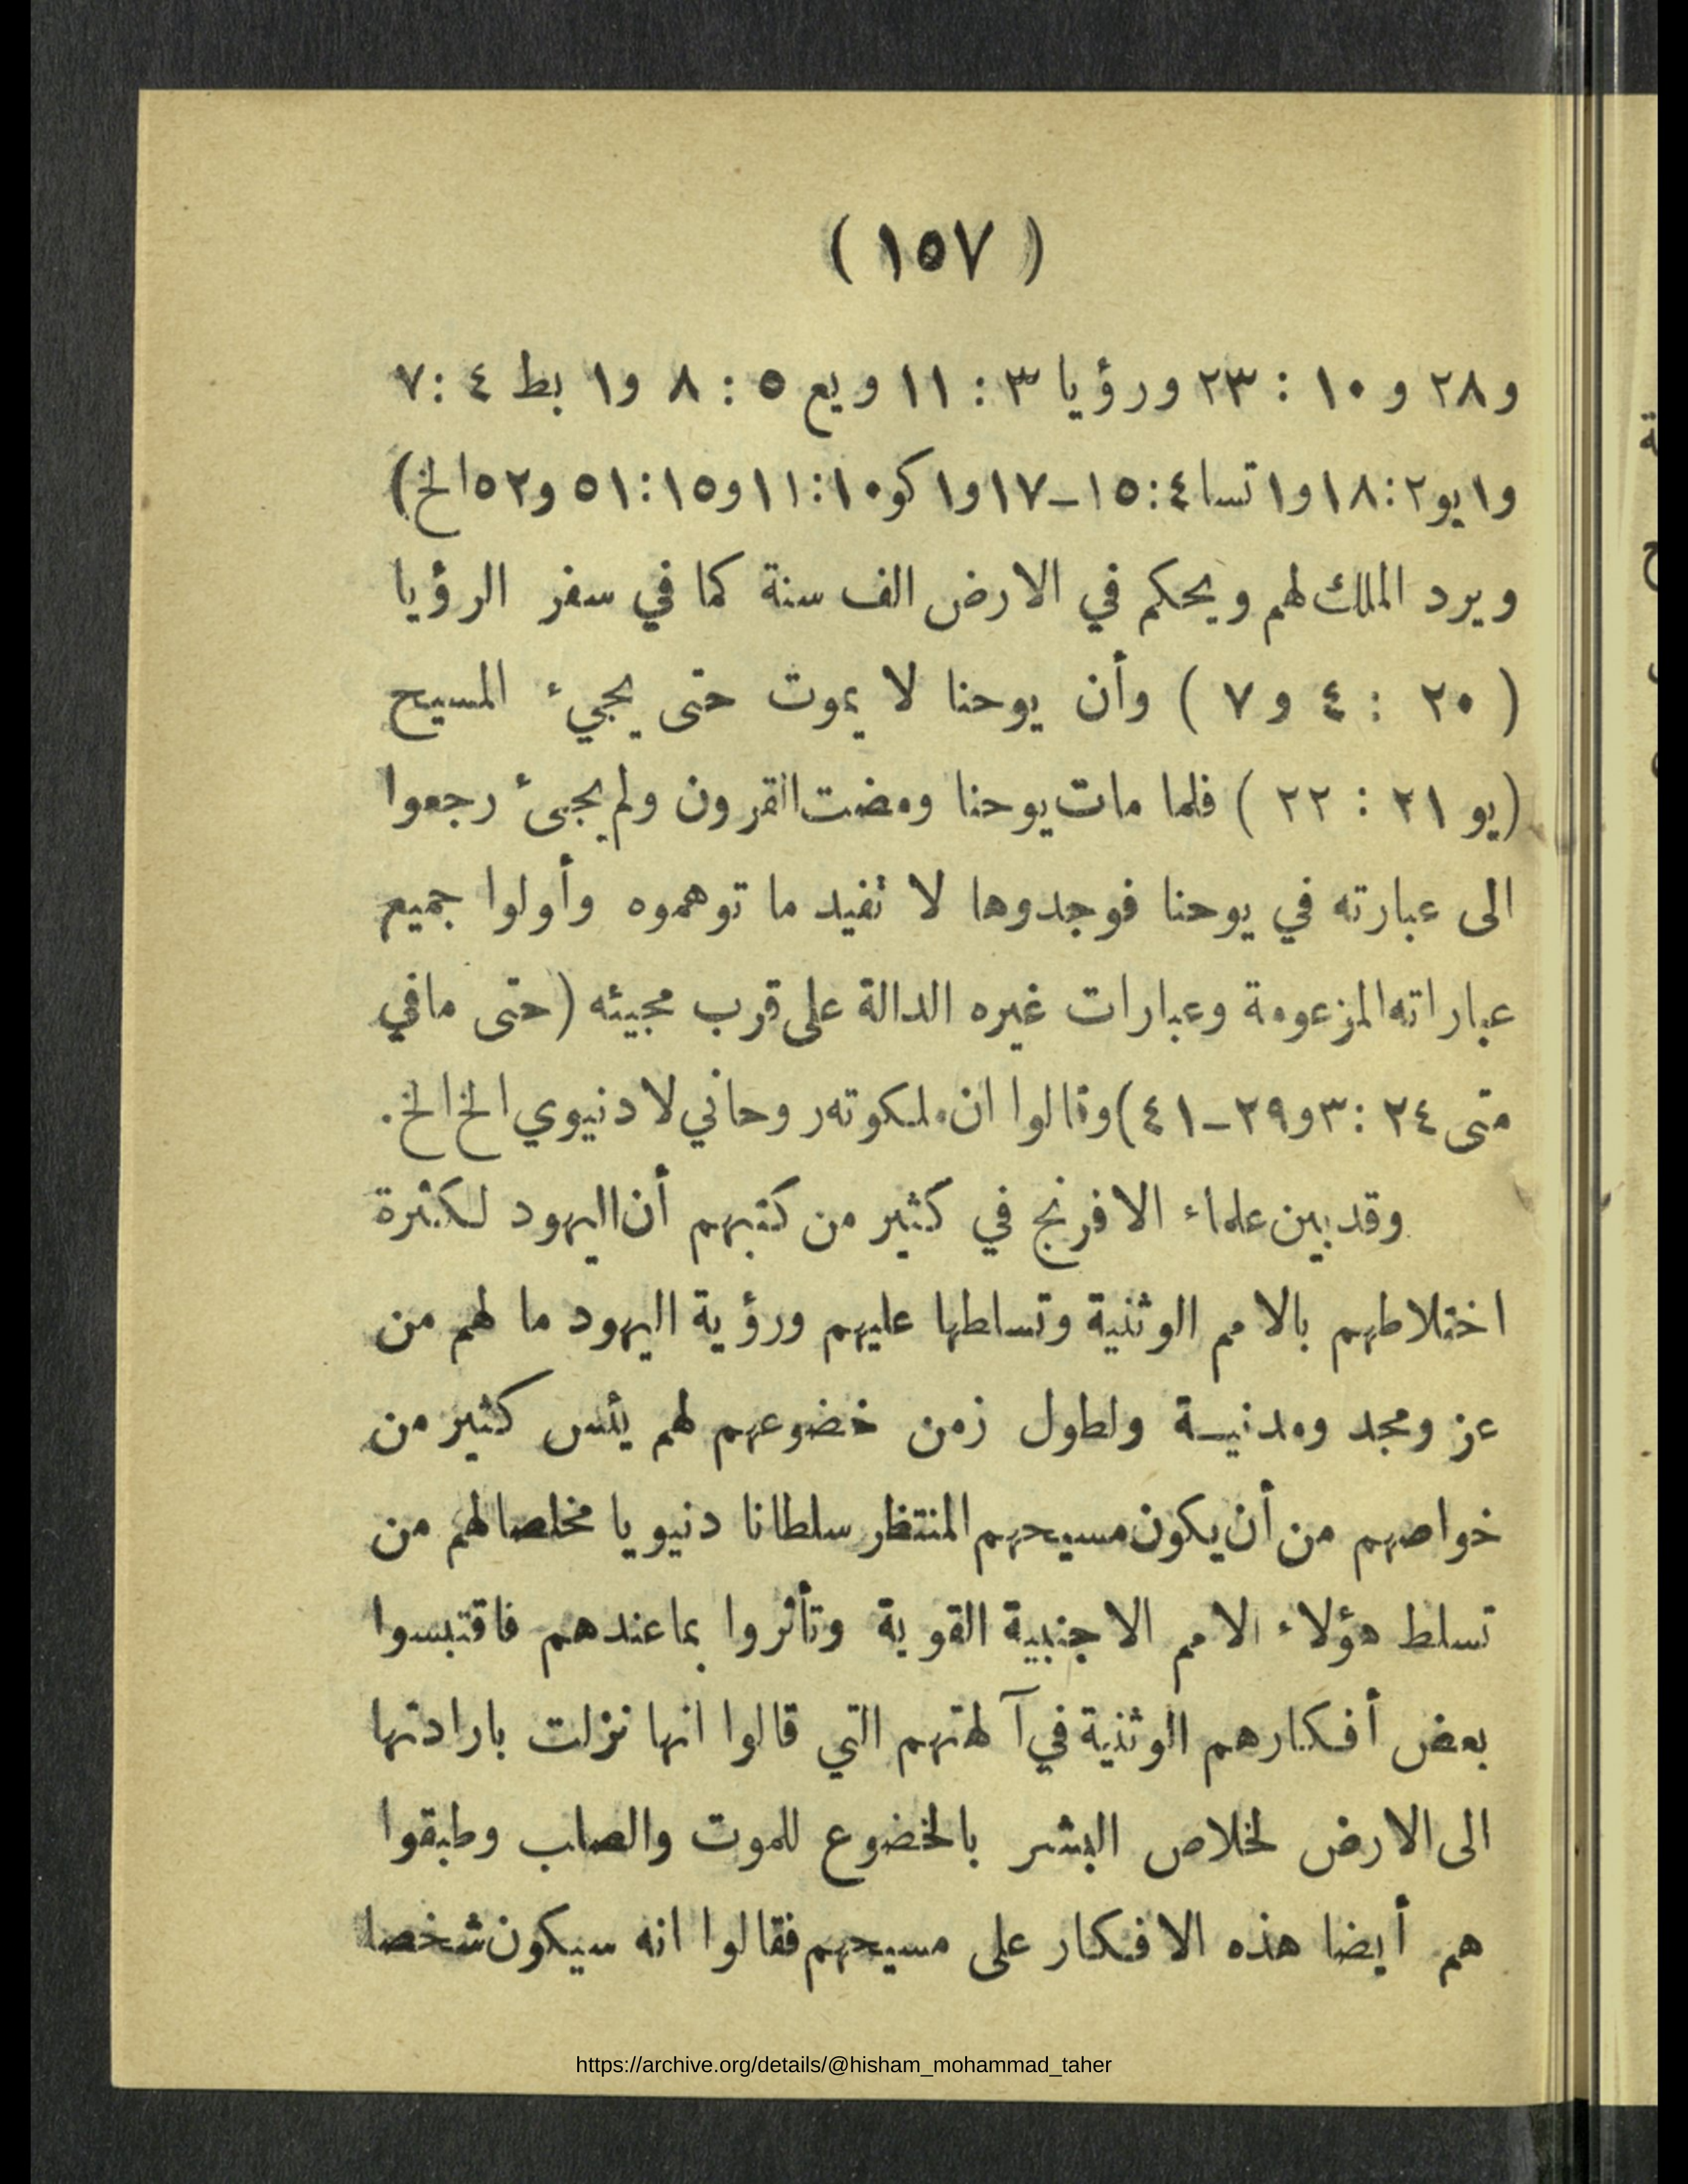 ( ١٥٧ )
و٢٨ و ١٠ : ٢٣ ورؤيا ٣ : ١١ ويع ٥ : ٨ و١ بط ٤ : ٧
و١ يو ٢ : ١٨ و١ تسا ٤ : ١٥ – ١٧ و١ كو ١٠ : ١١ و١٥ : ٥١ و٥٢ الخ)
ويرد الملك لهم ويحكم في الارض الف سنة كما في سفر الرؤيا
( ٢٠ : ٤ و٧ ) وأن يوحنا لا يموت حتى يجيء المسيح
(يو ٢١ : ٢٢ ) فلما مات يوحنا ومضت القرون ولم يجىء رجعوا
الى عبارته في يوحنا فوجدوها لا تفيد ما توهموه وأولوا جميع
عباراته المزعومة وعبارات غيره الدالة على قرب مجيئه (حتى مافي
متى ٢٤ : ٣ و٢٩ – ٤١) وقالوا ان ملكوته روحاني لا دنيوي الخ الخ.
وقد بين علماء الافرنج في كثير من كتبهم أن اليهود لكثرة
اختلاطهم بالامم الوثنية وتسلطها عليهم ورؤية اليهود ما لهم من
عز ومجد ومدنيـة ولطول زمن خضوعهم لهم يئس كثير من
خواصهم من أن يكون مسيحهم المنتظر سلطانا دنيويا مخلصا لهم من
تسلط هؤلاء الامم الاجنبية القوية وتأثروا بما عندهم فاقتبسوا
بعض أفكارهم الوثنية في آلهتهم التي قالوا انها نزلت بارادتها
الى الارض لخلاص البشر بالخضوع للموت والصلب وطبقوا
هم أيضا هذه الافكار على مسيحهم فقالوا انه سيكون شخصا
https://archive.org/details/@hisham_mohammad_taher